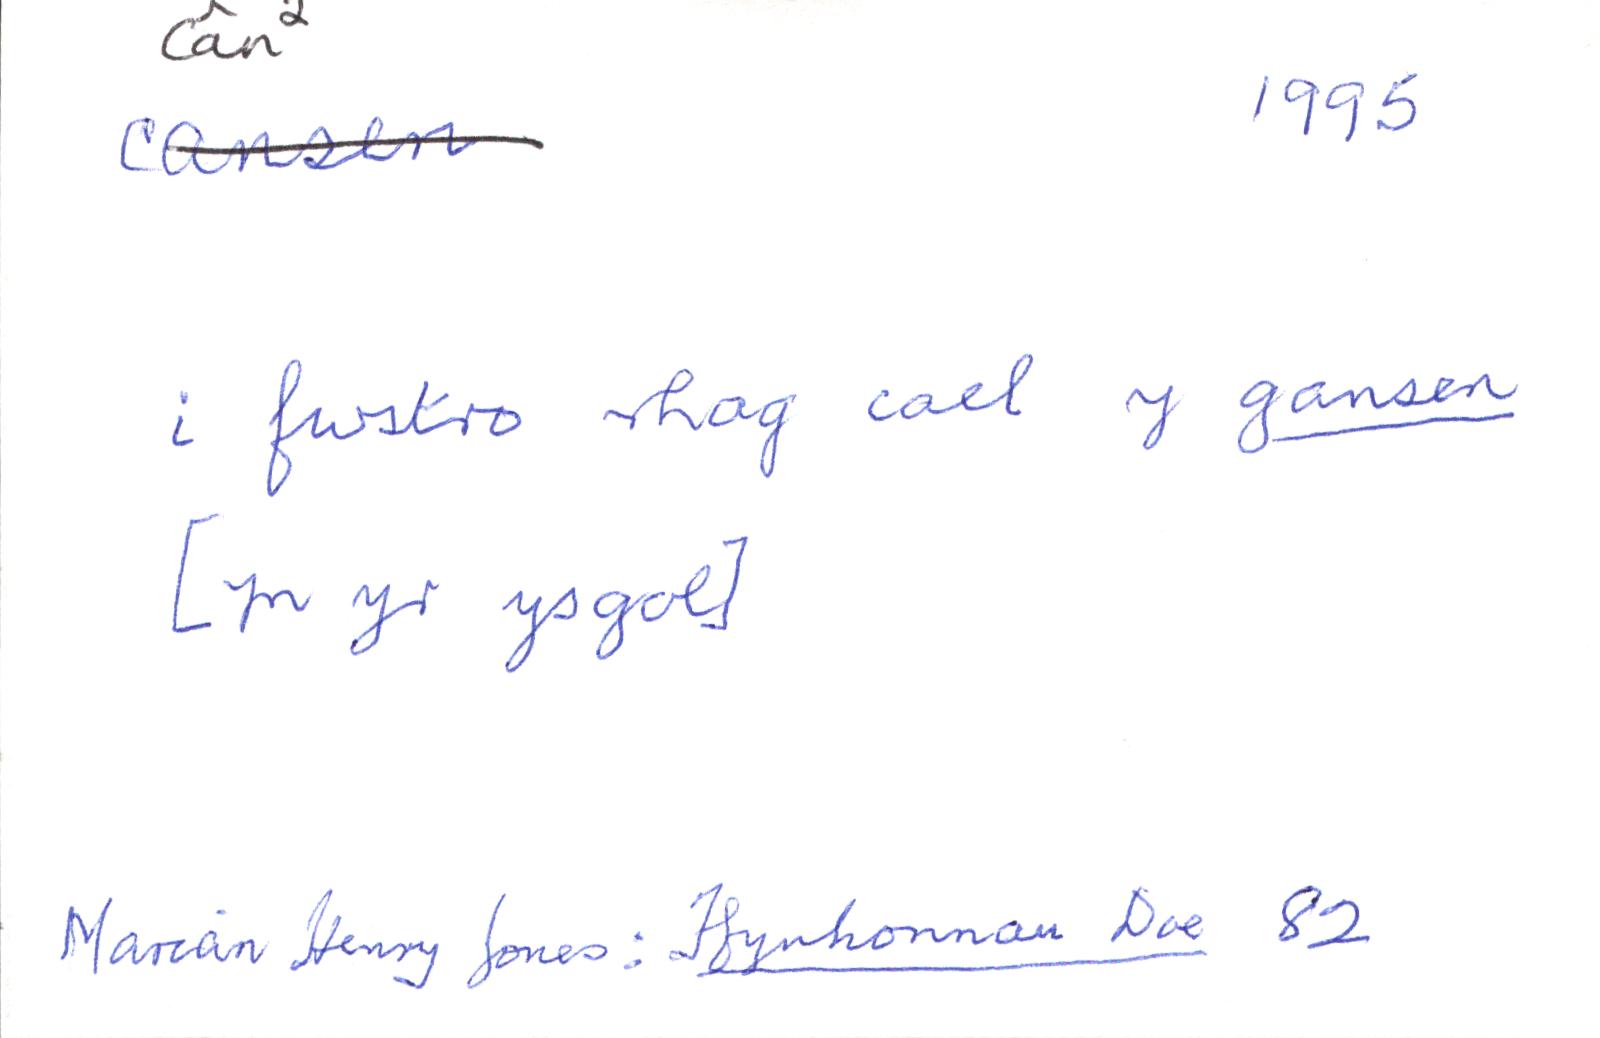 Cân²
cansen
1995
i fwstro rhag cael y gansen
[yn yr ysgol]
Marian Henry Jones: Ffynhonnau Doe 82